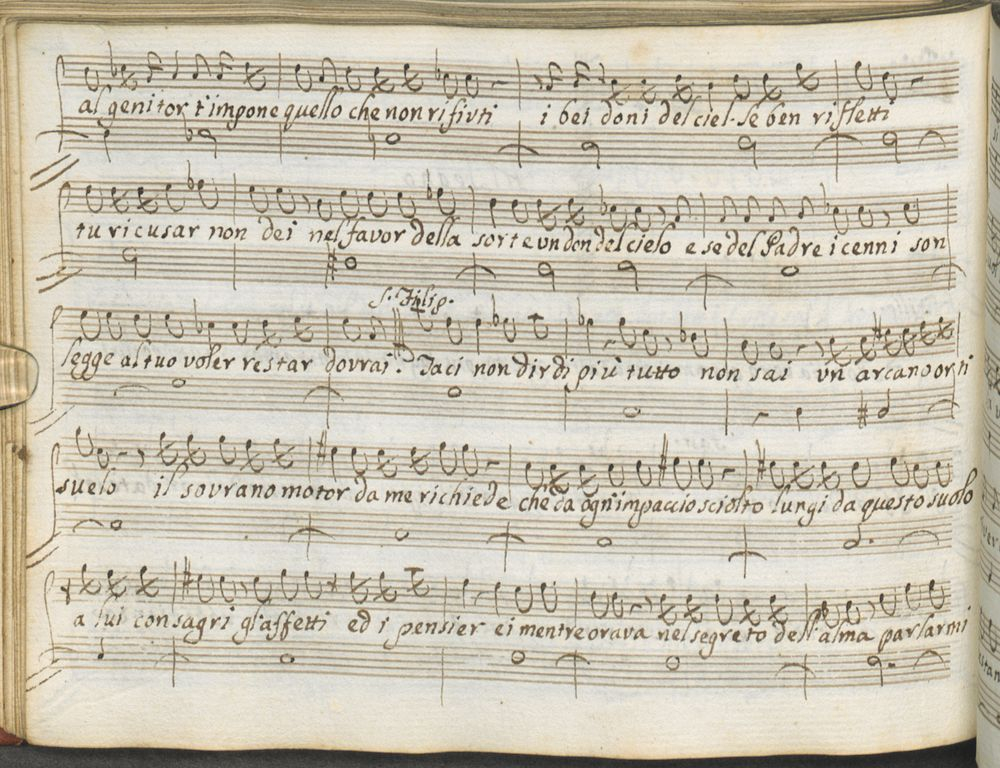 al genitor t'impone quello che non rifiuti i bei doni del ciel. se ben rifletti
tu ricusar non dei nel favor della sorte un don del cielo e se del Padre i cenni son
S. Filip.
legge al tuo voler restar dovrai. Taci non dir di più tutto non sai un arcano or ti
svelo il sovrano motor da me richiede che da ogn'impaccio sciolto lungi da questo suolo
a lui consagri gl'affetti ed i pensier ei mentre orava nel segreto dell'alma parlarmi